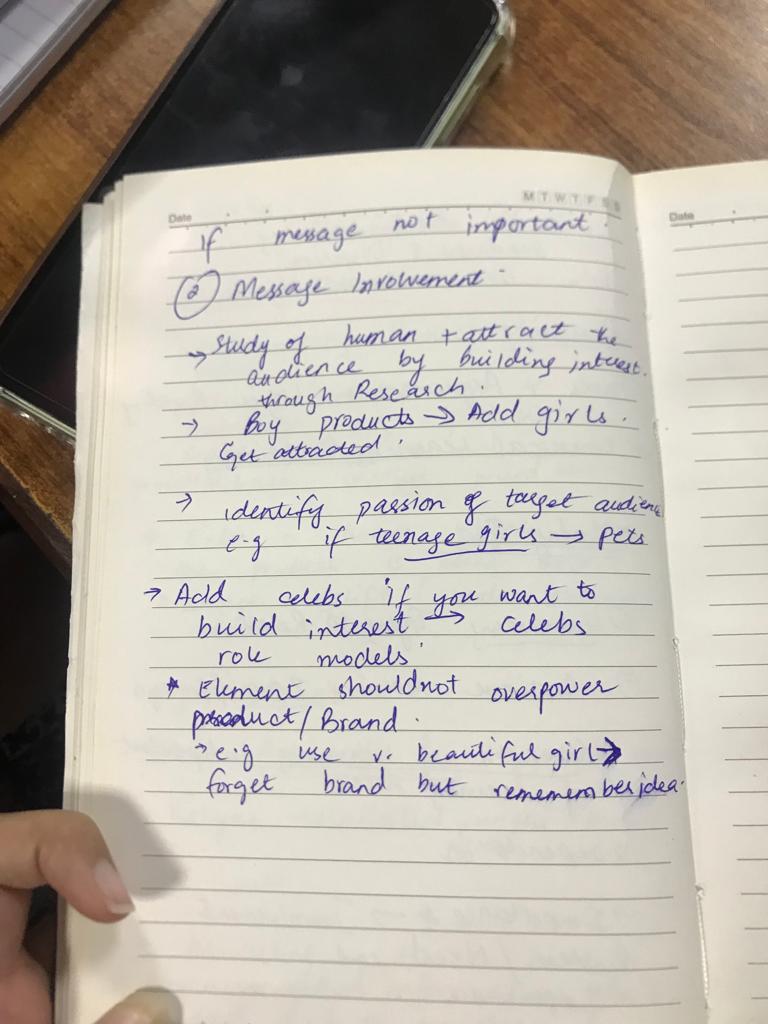 Date
M T W T F S S
If message not important.
② Message Involvement.
→ Study of human + attract the
audience by building interest.
through Research.
→ Boy products → Add girls.
Get attracted.
→ identify passion of target audience
e.g if teenage girls → pets
→ Add celebs if you want to
build interest → celebs
role models.
* Element shouldnot overpower
product/Brand.
→ e.g use v. beautiful girl →
forget brand but rememembers idea.
Date